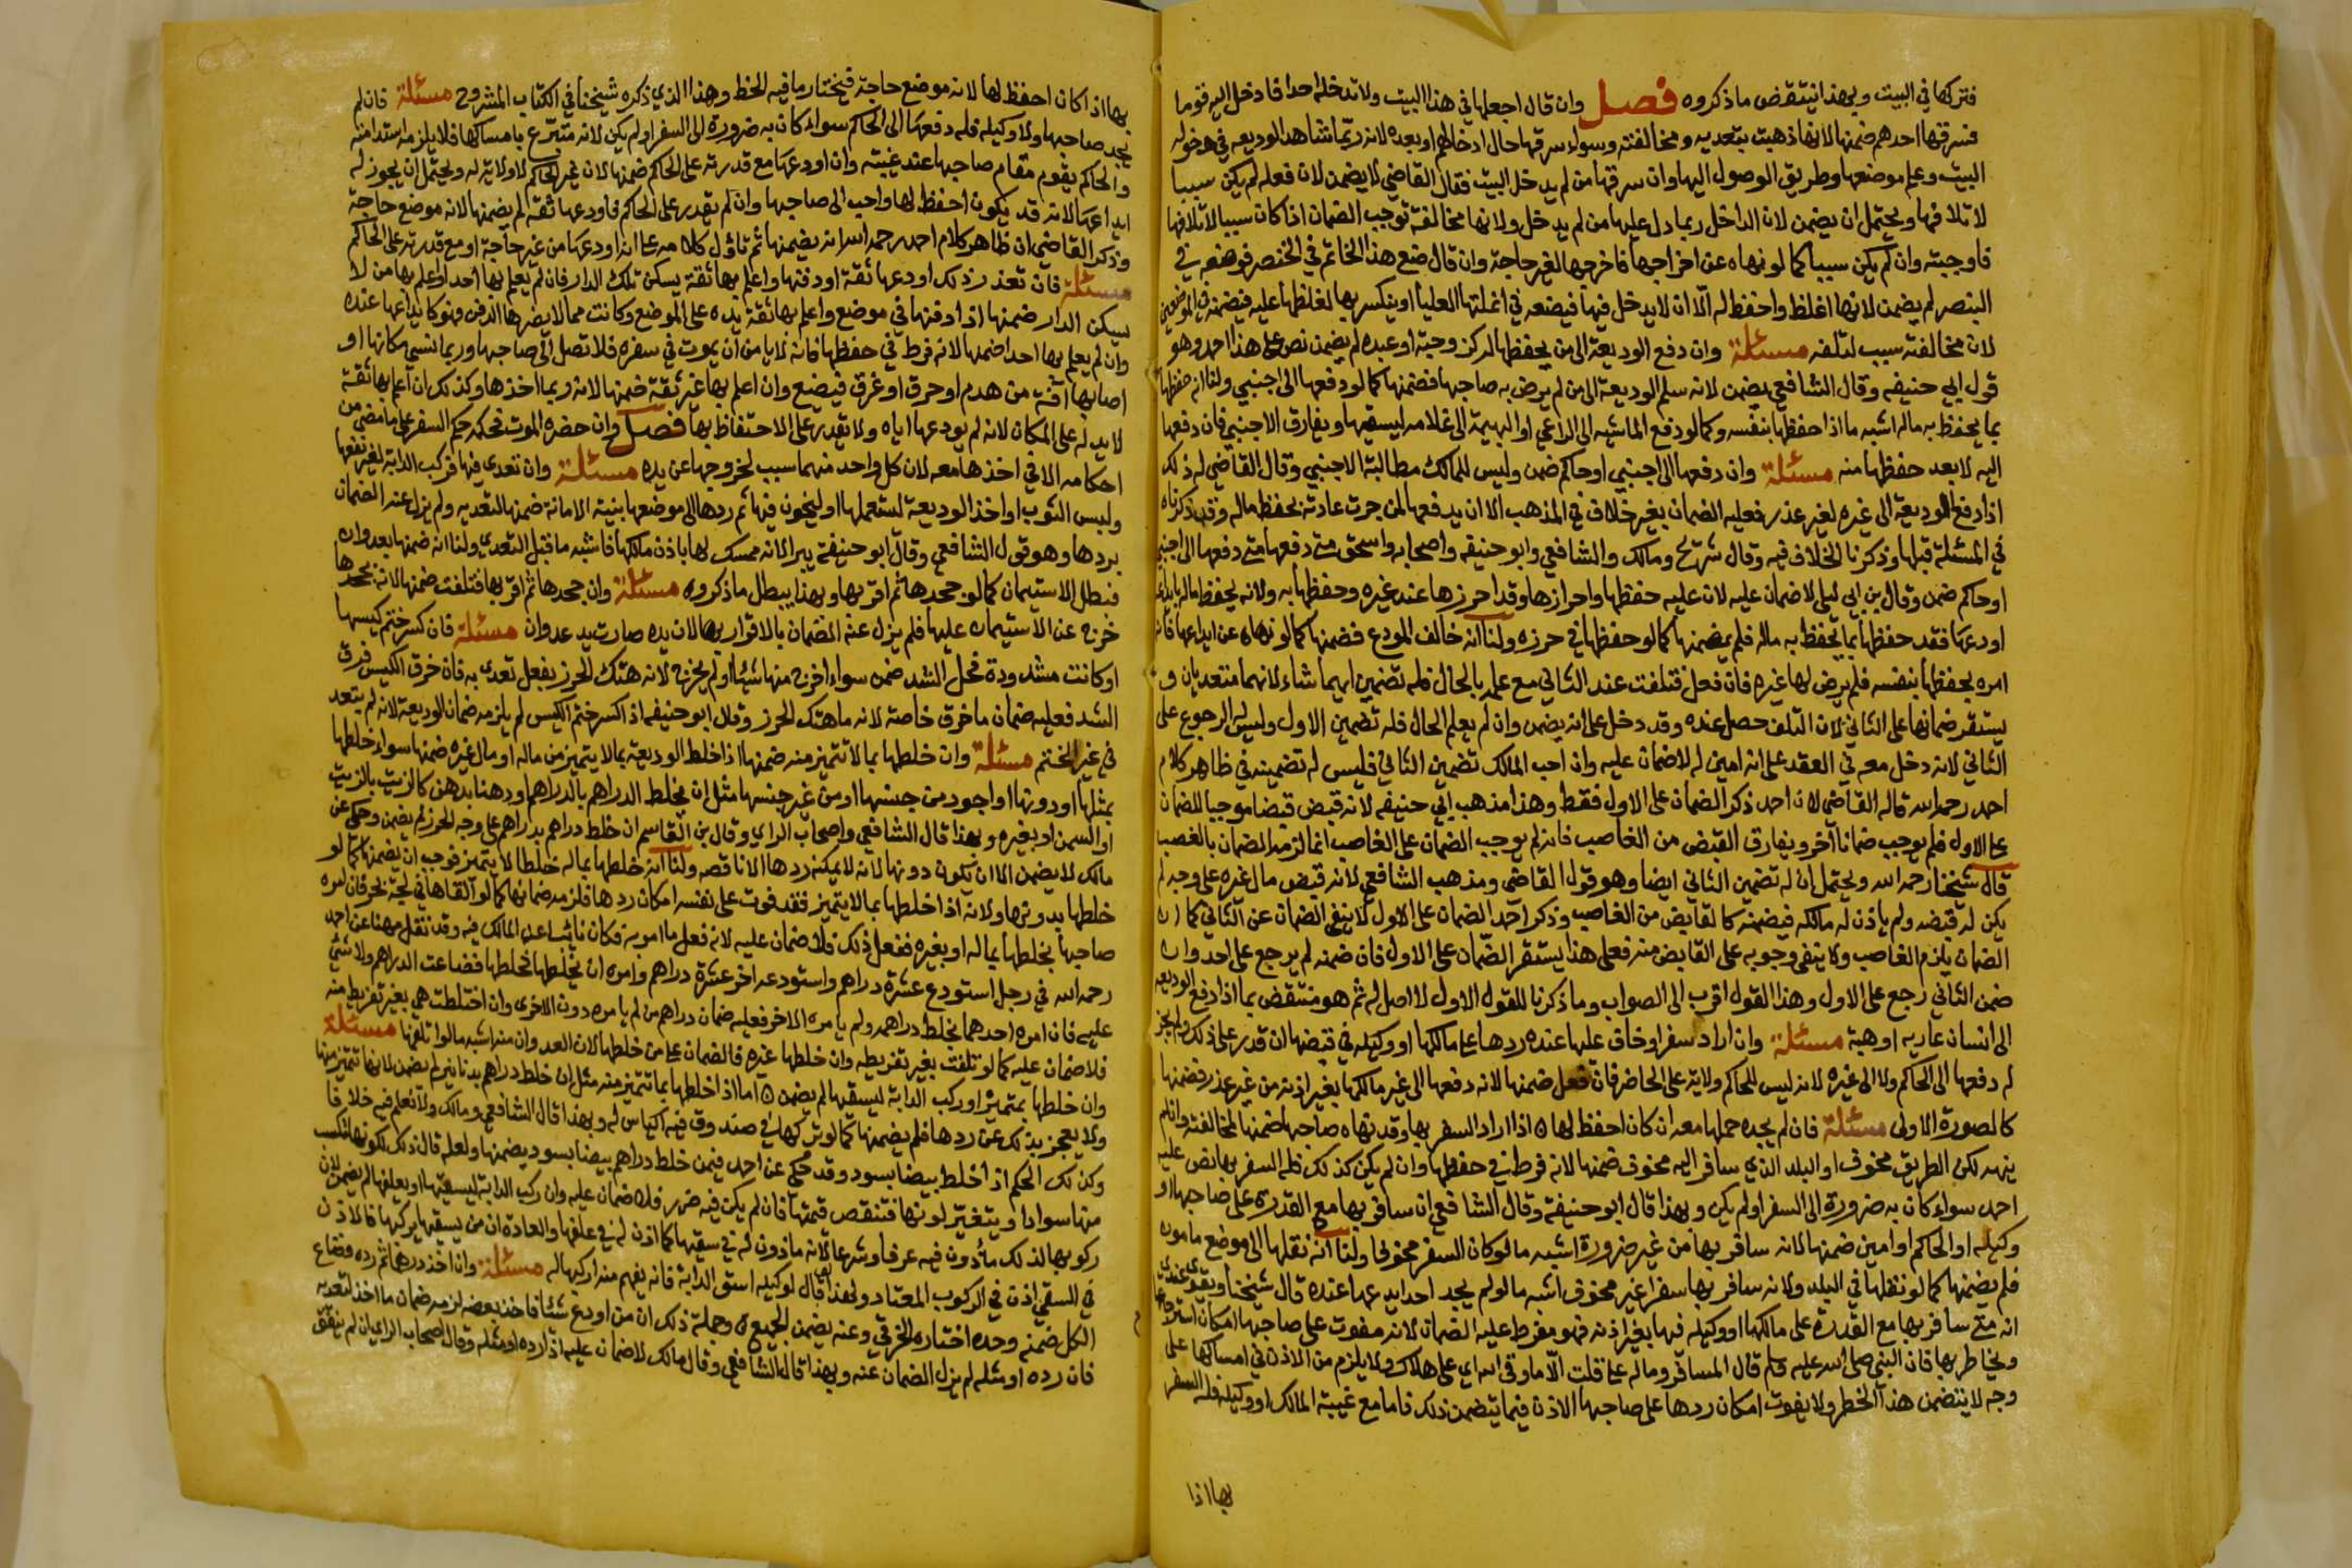 فتركها في البيت وبهذا ينتقض ما ذكروه فصل وان قال اجعلها في هذا البيت ولا تدخله احدا فادخل اليه قوما
فسرقها احدهم ضمنها لانها ذهبت بتعديه ومخالفته وسواء سرقها حال ادخالهم او بعده لانه ربما شاهد الوديعه في دخوله
البيت وعلم موضعها وطريق الوصول اليها وان سرقها من لم يدخل البيت فقال القاضي لا يضمن لان فعله لم يكن سببا
لاتلافها ويحتمل ان يضمن لان الداخل ربما دل عليها من لم يدخل ولانها مخالفة توجب الضمان اذا كان سببا لاتلافها
فاوجبته وان لم يكن سببا كما لو نهاه عن اخراجها فاخرجها لغير حاجة وان قال ضع هذا الخاتم في الخنصر فوضعه في
البنصر لم يضمن لانها اغلظ واحفظ له الا ان لا يدخل فيها فيضعه في انملتها العليا او ينكسر بها لغلظها عليه فيضمنه في الموضعين
لان مخالفته سبب لتلفه مسئلة وان دفع الوديعة الى من يحفظ ماله كزوجته او عبده لم يضمن نص على هذا احمد وهو
قول ابي حنيفه وقال الشافعي يضمن لانه سلم الوديعة الى من لم يرض به صاحبها فضمنها كما لو دفعها الى اجنبي ولنا انه حفظها
بما يحفظ به ماله اشبه ما اذا حفظها بنفسه وكما لو دفع الماشيه الى الراعي او البهيمة الى غلامه ليسقيها ويفارق الاجنبي فان دفعها
اليه لا يعد حفظها منه مسئلة وان دفعها الى اجنبي او حاكم ضمن وليس للمالك مطالبة الاجنبي وقال القاضي له ذلك
اذا دفع الوديعة الى غيره لغير عذر فعليه الضمان بغير خلاف في المذهب الا ان يدفعها لمن جرت عادته بحفظ ماله وقد ذكرناه
في المسئلة قبلها وذكرنا الخلاف فيه وقال شريح ومالك والشافعي وابو حنيفه واصحابه واسحق متى دفعها متى دفعها الى اجنبي
او حاكم ضمن وقال بن ابي ليلى لا ضمان عليه لان عليه حفظها واحرازها وقد احرزها عند غيره وحفظها به ولانه يحفظ ماله بايداعه
اودعها فقد حفظها بما يحفظ به ماله فلم يضمنها كما لو حفظها في حرزه ولنا انه خالف المودع فضمنها كما لو نهاه عن ايداعها فانه
امره بحفظها بنفسه فلم يرض لها غيره فان فعل فتلفت عند الثاني مع علمه بالحال فله تضمين ايهما شاء لانهما متعديان و
يستقر ضمانها على الثاني لان التلف حصل عنده وقد دخل على انه يضمن وان لم يعلم الحال فله تضمين الاول وليس له الرجوع على
الثاني لانه دخل معه في العقد على انه امين له لا ضمان عليه وان احب المالك تضمين الثاني فليس له تضمينه في ظاهر كلام
احمد رحمه الله قاله القاضي لان احمد ذكر الضمان على الاول فقط وهذا مذهب ابي حنيفه لانه قبض قبضا موجبا للضمان
على الاول فلم يوجب ضمانا آخر ويفارق القبض من الغاصب فانه لم يوجب الضمان على الغاصب انما لزمه الضمان بالغصب
قال شيخنا رحمه الله ويحتمل ان له تضمين الثاني ايضا وهو قول القاضي ومذهب الشافعي لانه قبض مال غيره على وجه لم
يكن له قبضه ولم ياذن له مالكه فيضمنه كالقابض من الغاصب وذكر احمد الضمان على الاول لا ينفي الضمان عن الثاني كما ان
الضمان يلزم الغاصب ولا ينفي وجوبه على القابض منه فعلى هذا يستقر الضمان على الاول فان ضمنه لم يرجع على احد وان
ضمن الثاني رجع على الاول وهذا القول اقرب الى الصواب وما ذكرنا للقول الاول لا اصل له ثم هو منتقض بما اذا دفع الوديعه
الى انسان عاريه او هبة مسئلة وان اراد سفرا وخاف عليها عنده ردها على مالكها او وكيله في قبضها ان قدر على ذلك ولم يجز
له دفعها الى الحاكم ولا الى غيره لانه ليس للحاكم ولاية على الحاضر فان فعل ضمنها لانه دفعها الى غير مالكها بغير اذنه من غير عذر فضمنها
كالصورة الاولى مسئلة فان لم يجده حملها معه ان كان احفظ لها اذا اراد السفر بها وقد نهاه صاحبها ضمنها لمخالفته وان لم
ينهه لكن الطريق مخوف او البلد الذي سافر اليه مخوف ضمنها لانه فرط في حفظها وان لم يكن كذلك فله السفر بها نص عليه
احمد سواء كان به ضرورة الى السفر او لم يكن وبهذا قال ابو حنيفة وقال الشافعي ان سافر بها مع القدرة على صاحبها او
وكيله او الحاكم او امين ضمنها لانه سافر بها من غير ضرورة اشبه ما لو كان السفر مخوفا ولنا انه نقلها الى موضع مامون
فلم يضمنها كما لو نقلها في البلد ولانه سافر بها سفرا غير مخوف اشبه ما لو لم يجد احدا يدعها عنده قال شيخنا ويقوى عندي
انه متى سافر بها مع القدرة على مالكها او وكيله فيها بغير اذنه فهو مفرط عليه الضمان لانه مفوت على صاحبها امكان استرجاعها
ويخاطر بها فان النبي صلى الله عليه وسلم قال المسافر وماله على قلت الا ما وقى الله اي على هلاك ولا يلزم من الاذن في امساكها على
وجه لا يتضمن هذا الخطر ولا يفوت امكان ردها على صاحبها الاذن فيما يتضمن ذلك فاما مع غيبة المالك او وكيله فله السفر
بها اذا
بها اذا كان احفظ لها لانه موضع حاجة فيختار ما فيه الحظ وهذا الذي ذكره شيخنا في الكتاب المشروح مسئلة فان لم
يجد صاحبها ولا وكيله فله دفعها الى الحاكم سواء كان به ضرورة الى السفر او لم يكن لانه متبرع بامساكها فلا يلزمه استدامته
والحاكم يقوم مقام صاحبها عند غيبته وان اودعها مع قدرته على الحاكم ضمنها لان غير الحاكم لا ولاية له ويحتمل ان يجوز له
ايداعها لانه قد يكون احفظ لها واحب الى صاحبها وان لم يقدر على الحاكم فاودعها ثقة لم يضمنها لانه موضع حاجة
وذكر القاضي ان ظاهر كلام احمد رحمه الله انه يضمنها ثم تاول كلامه على انه اودعها من غير حاجة او مع قدرته على الحاكم
مسئلة فان تعذر ذلك اودعها ثقة او دفنها واعلم بها ثقة يسكن تلك الدار فان لم يعلم بها احدا او اعلم بها من لا
يسكن الدار ضمنها اذا دفنها في موضع واعلم بها ثقة يده على الموضع وكانت مما لا يضرها الدفن فهو كايداعها عنده
وان لم يعلم بها احدا ضمنها لانه فرط في حفظها فانه لا يامن ان يموت في سفره فلا تصل الى صاحبها وربما نسي مكانها او
اصابها آفة من هدم او حرق او غرق فيضع وان اعلم بها غير ثقة ضمنها لانه ربما اخذها وكذلك ان اعلم بها ثقة
لا يد له على المكان لانه لم يودعها اياه ولا تقدر على الاحتفاظ بها فصل وان حضره الموت فحكمه حكم السفر على ما مضى من
احكامه الا في اخذها معه لان كل واحد منهما سبب لخروجها عن يده مسئلة وان تعدى فيها فركب الدابة لغير نفعها
ولبس الثوب او اخذ الوديعة لتستعملها او ليخون فيها ثم ردها الى موضعها بنية الامانة ضمنها لتعديه ولم يزل عنه الضمان
بردها وهو قول الشافعي وقال ابو حنيفة يبرا لانه ممسك لها باذن مالكها فاشبه ما قبل التعدي ولنا انه ضمنها بعدوان
فبطل الاستيمان كما لو جحدها ثم اقر بها وبهذا يبطل ما ذكروه مسئلة وان جحدها ثم اقر بها فتلفت ضمنها لانه بجحدها
خرج عن الاستيمان عليها فلم يزل عنه الضمان بالاقرار بها لان يده صارت يد عدوان مسئلة فان كسر ختم كيسها
او كانت مشدودة فحل الشد ضمن سواء اخرج منها شيئا او لم يخرج لانه هتك الحرز بفعل تعدى به فان خرق الكيس فوق
الشد فعليه ضمان ما خرق خاصة لانه ما هتك الحرز وقال ابو حنيفه اذا كسر ختم الكيس لم يلزمه ضمان الوديعة لانه لم يتعد
في غير الختم مسئلة وان خلطها بما لا تتميز منه ضمنها اذا خلط الوديعة بما لا يتميز من ماله او مال غيره ضمنها سواء خلطها
بمثلها او دونها او اجود من جنسها او من غير جنسها مثل ان يخلط الدراهم بالدراهم او دهنا بدهن كالزيت بالزيت
او السمن او بغيره وبهذا قال الشافعي واصحاب الراي وقال بن القاسم ان خلط دراهم بدراهم على وجه الحرز لم يضمن وحكى عن
مالك لا يضمن الا ان تكون دونها لانه لا يمكنه ردها الا ناقصه ولنا انه خلطها بماله خلطا لا يتميز فوجب ان يضمنها كما لو
خلطها بدونها ولانه اذا خلطها بما لا يتميز فقد فوت على نفسه امكان ردها فلزمه ضمانها كما لو القاها في لجة بحر فان امره
صاحبها بخلطها بماله او بغيره ففعل ذلك فلا ضمان عليه لانه فعل ما امر به فكان نائبا عن المالك فيه وقد نقل مهنا عن احمد
رحمه الله في رجل استودع عشرة دراهم واستودعه اخر عشرة دراهم وامره ان يخلطها فخلطها فضاعت الدراهم ولا شي
عليه فان امره احدهما بخلط دراهمه ولم يامره الاخر فعليه ضمان دراهم من لم يامره دون الاخرى وان اختلطت هي بغير تفريط منه
فلا ضمان عليه كما لو تلفت بغير تفريطه وان خلطها غيره فالضمان على من خلطها لان العدوان منه اشبه ما لو اتلفها مسئلة
وان خلطها بمتميز او ركب الدابة ليسقيها لم يضمن اما اذا خلطها بما تتميز منه مثل ان خلط دراهم بدنانير لم يضمن لانها تتميز منها
ولا يعجز بذلك عن ردها فلم يضمنها كما لو تركها في صندوق فيه اكياس له وبهذا قال الشافعي ومالك ولا نعلم فيه خلافا
وكذلك الحكم اذا خلط بيضا بسود وقد حكي عن احمد فيمن خلط دراهم بيضا بسود يضمنها ولعله قال ذلك لكونها تكتسب
منها سوادا ويتغير لونها فتنقص قيمتها فان لم يكن فيه ضرر فلا ضمان عليه وان ركب الدابة ليسقيها او يعلفها لم يضمن لان
ركوبها لذلك مأذون فيه عرفا وشرعا لانه ماذون له في سقيها كما اذن له في علفها والعادة ان من يسقيها يركبها فالاذن
في السقي اذن في الركوب المعتاد ولهذا قال لوكيله اسق الدابة فانه يفهم منه اركبها له مسئلة وان اخذ درهما ثم رده فضاع
الكل ضمنه وحده اختاره الخرقي وعنه يضمن الجميع وجملة ذلك ان من اودع شيئا فاخذ بعضه لزمه ضمان ما اخذ لتعديه
فان رده او مثله لم يزل الضمان عنه وبهذا قال الشافعي وقال مالك لا ضمان عليه اذا رده او مثله وقال اصحاب الراي ان لم ينفق